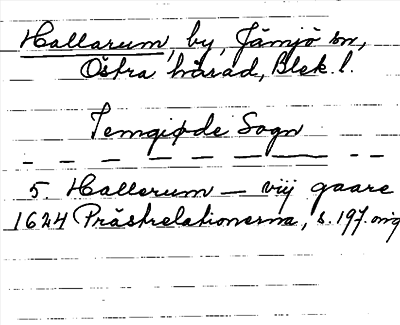 Hallarum, by, Jämjö sn,
Östra härad, Blek. l.
Jemgiøde Sogn
5. Hallerum — viij gaare
1624 Prästrelationerna, s. 197. orig